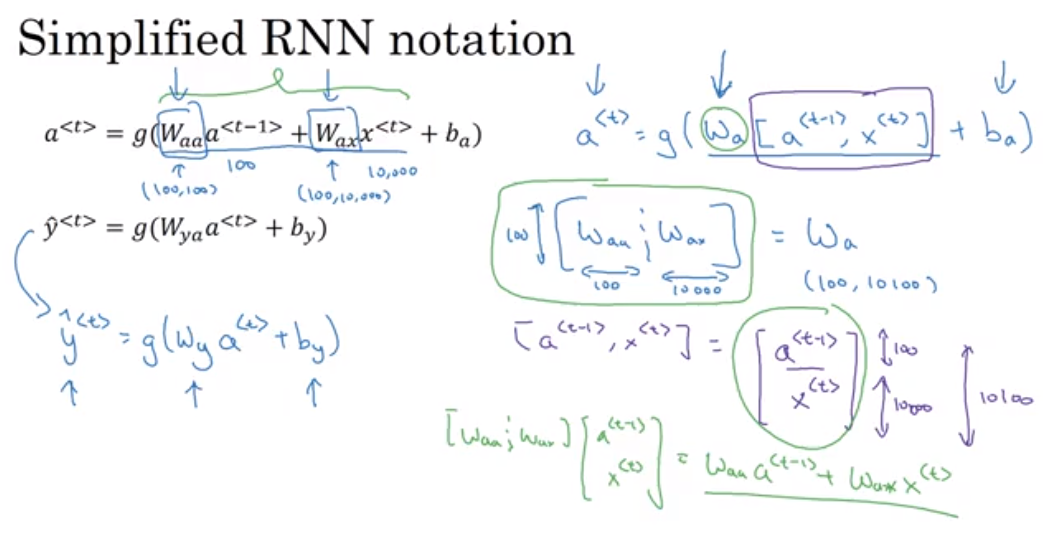 Simplified RNN notation
a<t> = g(Waa a<t−1> + Wax x<t> + ba)
100
10,000
(100,100)
(100,10,000)
ŷ<t> = g(Wya a<t> + by)
ŷ<t> = g(Wy a<t> + by)
a<t> = g(Wa [a<t-1>, x<t>] + ba)
100 [Waa ; Wax] = Wa
100
10000
(100, 10100)
[a<t-1>, x<t>] = [a<t-1>
x<t>]
100
10000
10100
[Waa ; Wax] [a<t-1>
x<t>] = Waa a<t-1> + Wax x<t>